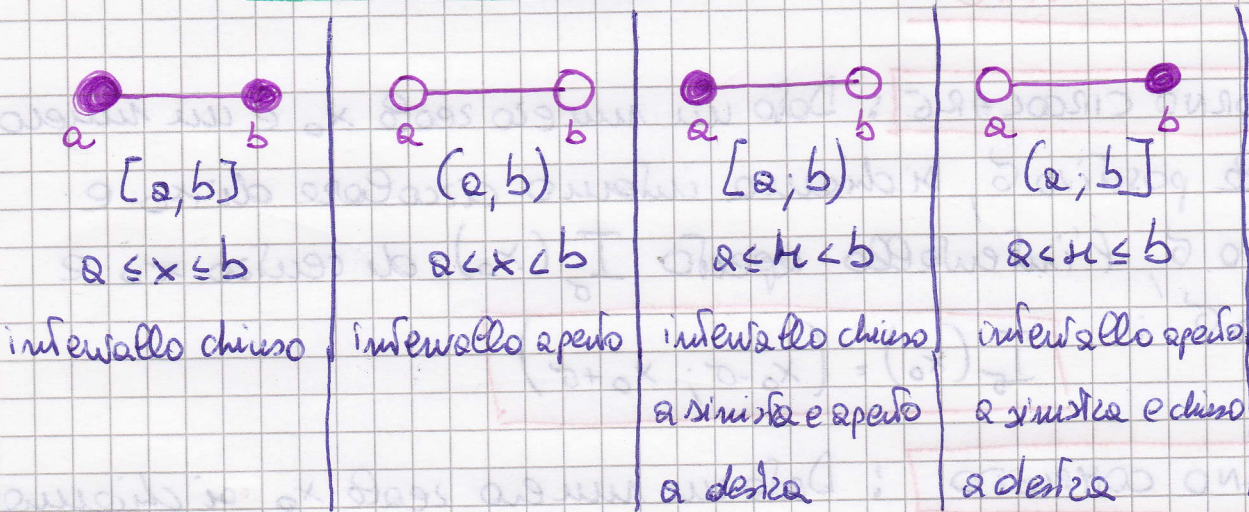 a b
[a,b]
a ≤ x ≤ b
intervallo chiuso
a b
(a,b)
a < x < b
intervallo aperto
a b
[a;b)
a ≤ x < b
intervallo chiuso
a sinistra e aperto
a destra
a b
(a;b]
a < x ≤ b
intervallo aperto
a sinistra e chiuso
a destra